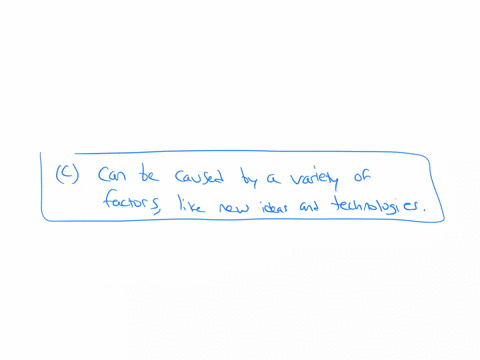 (C) Can be caused by a variety of
factors, like new ideas and technologies.